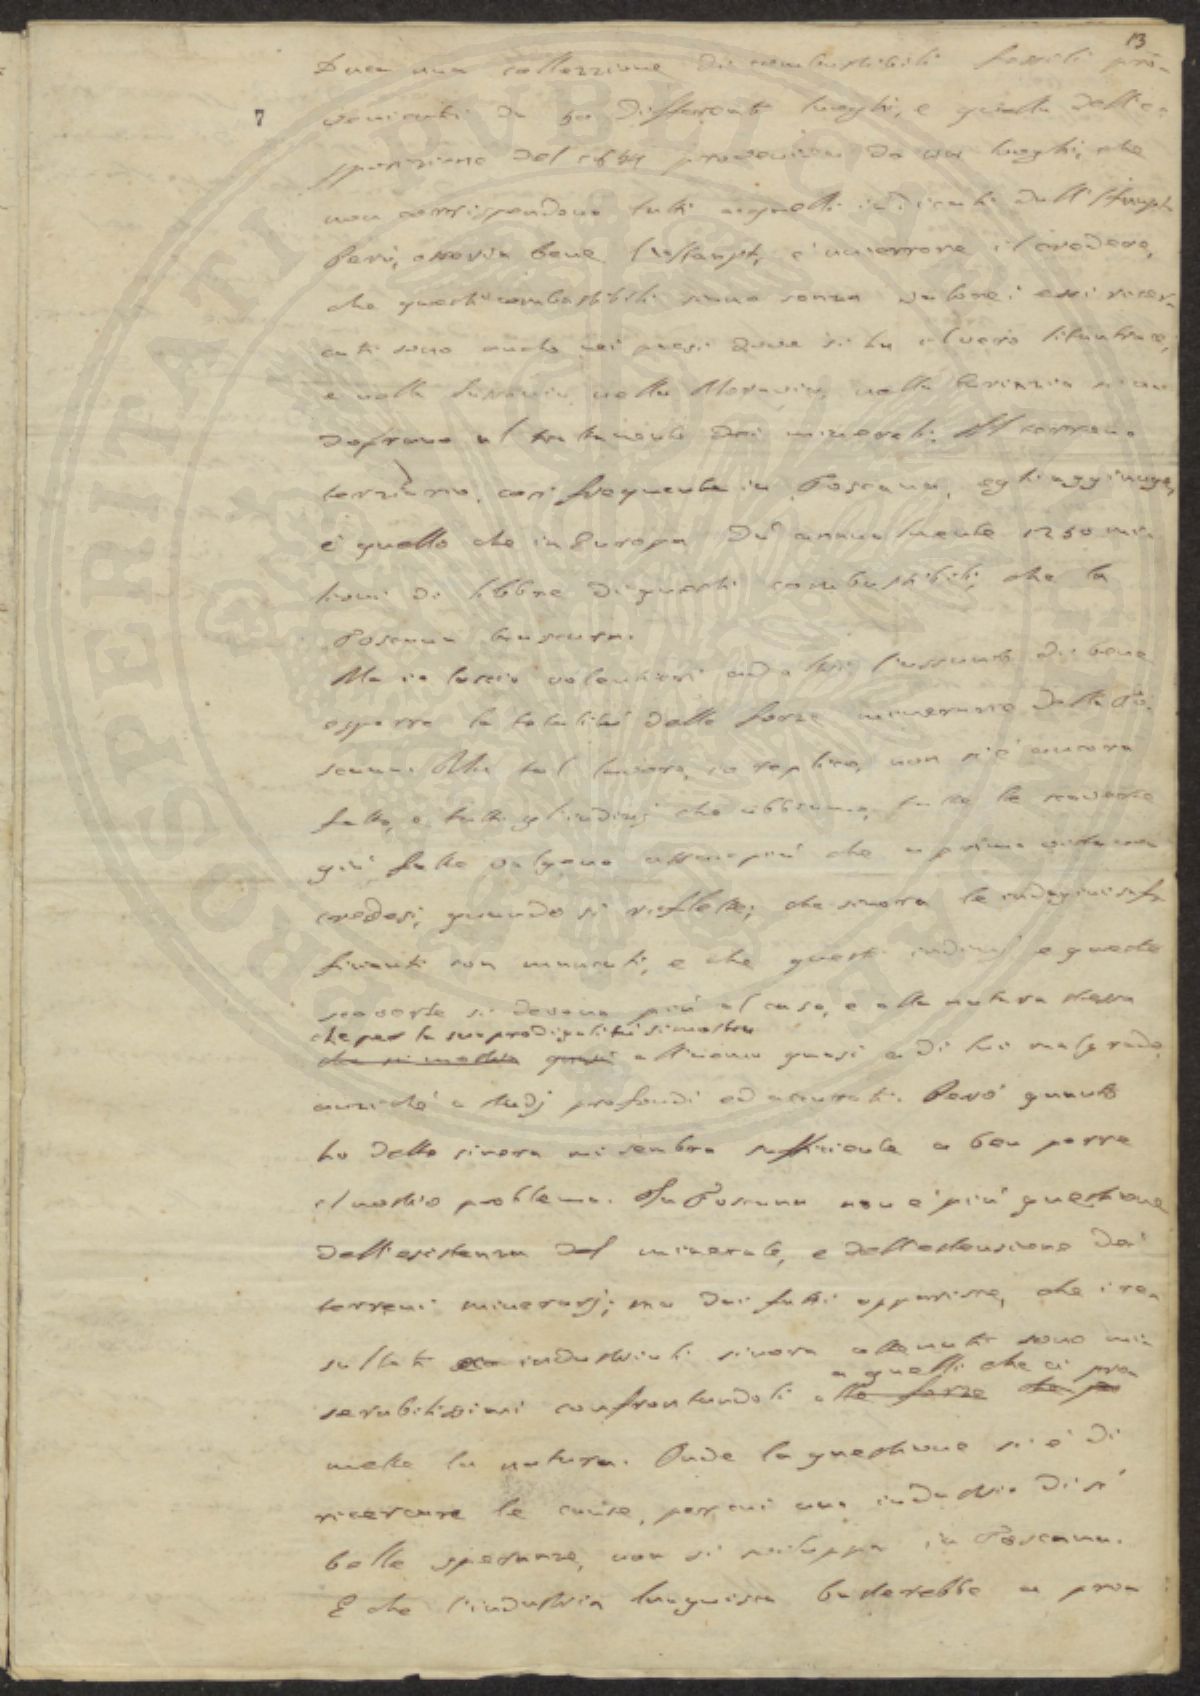 13
Duca una collezzione di combustibili fossili pro-
7
venienti da 50 differenti luoghi, e quella dell'e-
sposizione del 1854 proveniva da luoghi, che
non corrispondono tutti a quelli indicati dall'
Però, osserva bene è un errore il credere,
che questi combustibili siano senza valore; essi ricer-
cati sono anche nei paesi dove si ha il vero litantrace,
e nella nella Moravia, nella Carinzia
al trattamento dei minerali. Il terreno
terziario, così frequente in Toscana, egli aggiunge,
è quello che in Europa dà annualmente 1250 mi-
lioni di libbre di questi combustibili, che la
Toscana trascura.
Ma io lascio volentieri ad altri l'assunto di bene
esporre la totalità delle forze minerarie della To-
scana. Ma tal lavoro, io replico, non si è ancora
fatto, e tutti gl'indizj che abbiamo, tutte le scoverte
già fatte valgono assai più che a prima vista non
credesi, quando si riflette, che sinora le indagini
son mancati, e che questi indizj e queste
scoverte si devono più al caso, e alla natura stessa
che per la sua prodigalità si mostra
che si mostra quasi all'uomo quasi a di lui malgrado,
anziché a studj profondi ed accurati. Però quanto
ho detto sinora mi sembra sufficiente a ben porre
il nostro problema. In Toscana non è più questione
dell'esistenza del minerale, e dell'estensione dei
terreni minerarj; ma dai fatti apparisce, che i re-
sultati industriali sinora ottenuti sono mi-
a quelli che ci pro-
serabilissimi confrontandoli alle forze che
mette la natura. Onde la questione si è di
ricercare le cause, per cui una industria di sì
belle speranze, non si sviluppa in Toscana.
E che l'industria languisca basterebbe a pro-